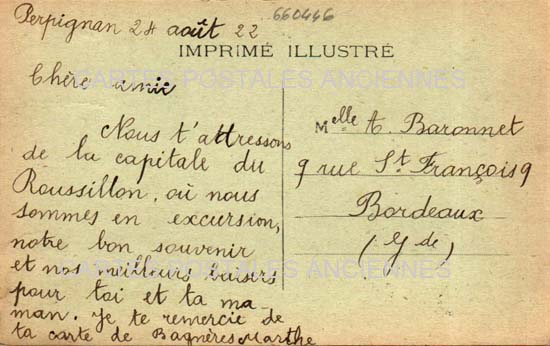 Perpignan 24 août 22
660446
IMPRIMÉ ILLUSTRÉ
CARTES POSTALES ANCIENNES
Chère amie
Nous t'adressons
de la capitale du
Roussillon, où nous
sommes en excursion,
notre bon souvenir
et nos meilleurs baisers
pour toi et ta ma-
man. Je te remercie de
ta carte de Bagnères Marthe
Melle A. Baronnet
9 rue St. François 9
Bordeaux
(Gde)
CARTES POSTALES ANCIENNES